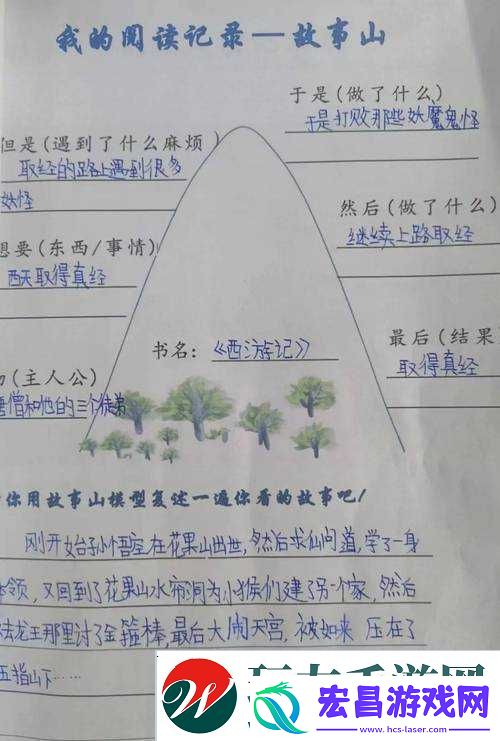 我的阅读记录—故事山
于是(做了什么)
于是打败那些妖魔鬼怪
但是(遇到了什么麻烦)
取经的路上遇到很多
妖怪
然后(做了什么)
继续上路取经
想要(东西/事情)
西天取得真经
最后(结果
取得真经
书名:《西游记》
(主人公)
唐僧和他的三个徒弟
你用故事山模型复述一遍你看的故事吧!
刚开始孙悟空在花果山出世,然后求仙问道,学了一身
本领,又回到了花果山水帘洞为小猴们建了另一个家,然后
龙王那里讨了金箍棒,最后大闹天宫,被如来 压在了
五指山下……
宏昌游戏网
www.hcs-laser.com